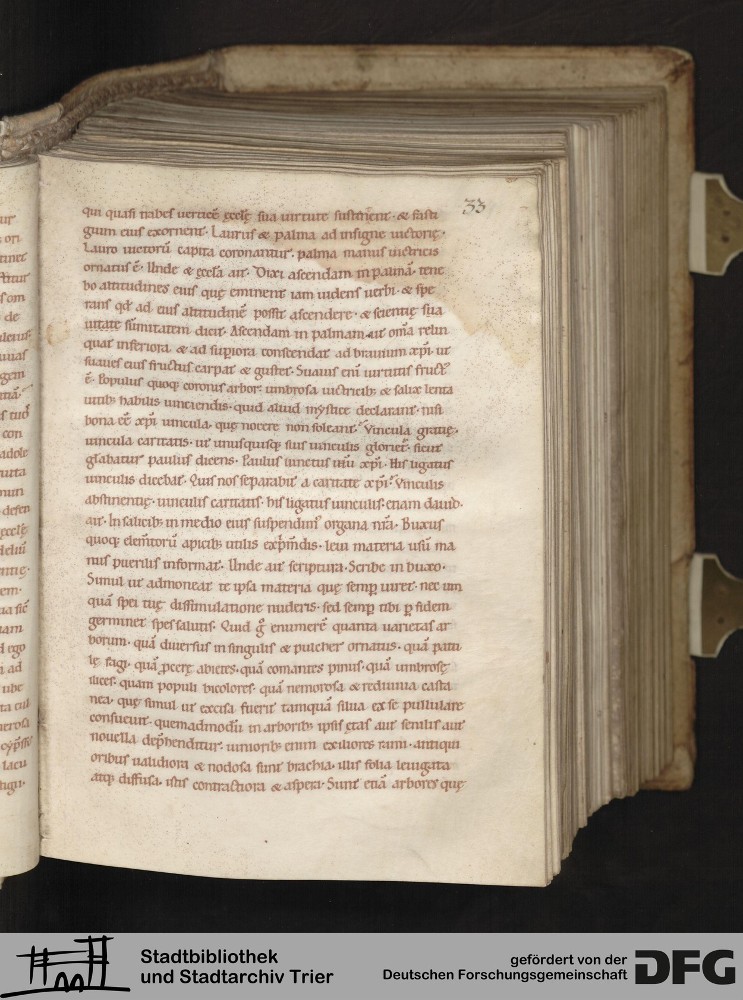 33
qui quasi trabes uerticē ęcclę sua uirtute sustinent· & fasti
gium eius exornent· Laurus & palma ad insigne uictorię·
Lauro uictorū capita coronantur· palma manus uictricis
ornatus ē· Unde & ęccla ait· Dixi ascendam in palmā· tene
bo altitudines eius quę eminent iam uidens uerbi· & spe
rans qd ad eius altitudinē possit ascendere· & scientię sua
uitate sūmitatem dicit· Ascendam in palmam· ut om̄a relin
quat inferiora & ad supiora conscendat ad brauium xp̄i· ut
suaues eius fructus carpat & gustet· Suauis enī uirtutis fruct
ē· Populus quoq; coronis arbor umbrosa uictricib; & salix lenta
uitib; habilis uinciendis· quid aliud mystice declarant· nisi
bona eē xp̄i uincula· quę nocere non soleant· Vincula gratię·
uincula caritatis· ut unusquisq; suis uinculis gloriet· sicut
glabatur paulus dicens· Paulus uinctus ihū xp̄i· His ligatus
uinculis dicebat· Quis nos separabit a caritate xp̄i· Vinculis
abstinentię· uinculis caritatis· his ligatus uinculis· etiam dauid·
ait· In salicib; in medio eius suspendim' organa nr̄a· Buxus
quoq; elem̄torū apicib; utilis exp̄m̄dis· leui materia usū ma
nus puerilis informat· Unde ait scriptura· Scribe in buxo·
Simul ut admoneat te ipsa materia quę semp uiret· nec um
quā spei tuę dissimulatione nuderis· sed semp tibi p fidem
germinet spes salutis· Quid g̊ enumerē quanta uarietas ar
borum· quā diuersus in singulis & pulcher ornatus· quā patu
lę fagi· quā pcerę abietes· quā comantes pinus· quā umbrosę
ilices· quam populi bicolores· quā nemorosa & rediuiua casta
nea· quę simul ut excisa fuerit tamquā silua ex se pullulare
consueuit· quemadmodū in arborib; ipsis ętas aut senilis aut
nouella dephenditur· iuniorib; enim exiliores rami· antiqui
oribus ualidiora & nodosa sunt brachia· illis folia leuigata
atq; diffusa· istis contractiora & aspera· Sunt etiā arbores quę
Stadtbibliothek
und Stadtarchiv Trier
gefördert von der
Deutschen Forschungsgemeinschaft
DFG